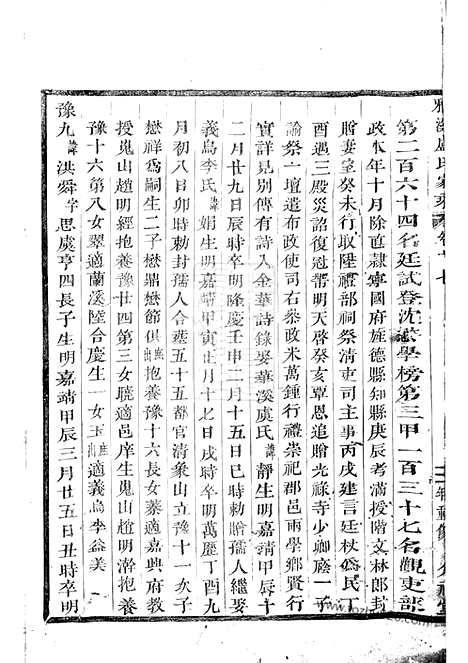 雅溪盧氏家乘 卷十七
第二百六十四名廷試登沈懋學榜第三甲一百三十七名觀吏部
政本年十月除直隸寧國府旌德縣知縣庚辰考滿授階文林郎封
贈妻室癸未行取陞禮部祠祭清吏司主事丙戌建言廷杖爲民丁
酉遇三殿災詔復冠帶明天啓癸亥覃恩追贈光祿寺少卿廕一子
諭祭一壇遣布政使司右叅政米萬鍾行禮崇祀郡邑兩學鄉賢行
實詳見別傳有詩入金華詩錄娶華溪虞氏諱靜生明嘉靖壬辰十
二月廿九日辰時卒明隆慶壬申二月十五日巳時贈孺人繼娶
義烏李氏諱娟生明嘉靖甲寅正月十七日戌時卒明萬曆丁酉六
月初八日卯時勅封孺人合葬五十五都官清象山立豫十一次子
懋祥爲嗣生二子懋鼎懋節俱出抱養豫十六長女適嘉興府教
授嵬山趙明經抱養豫廿四第三女驍適邑庠生嵬山趙明泰抱養
豫十六第八女翠適蘭溪陸合慶生一女玉出適義烏李益美
豫九諱洪舜字思虞亨四長子生明嘉靖甲辰三月廿五日丑時卒明